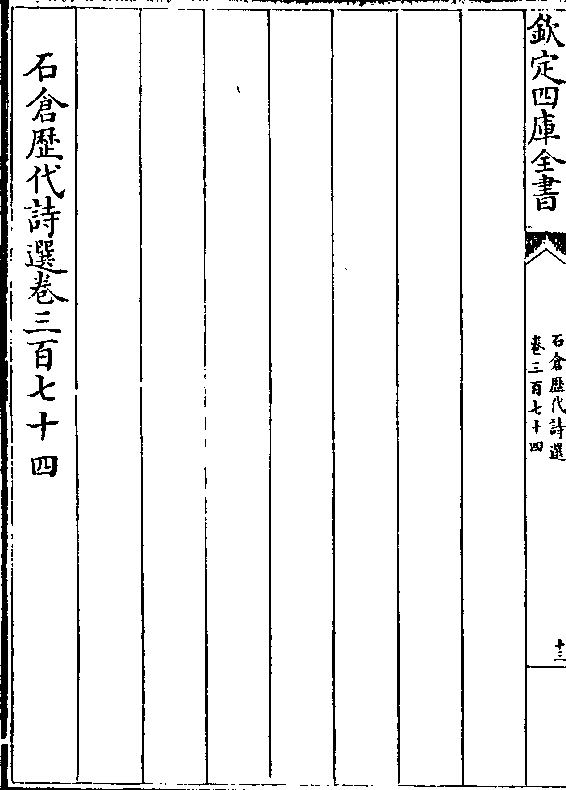 欽定四庫全書
石倉歴代詩選
卷三百七十四
十三
石倉歴代詩選卷三百七十四